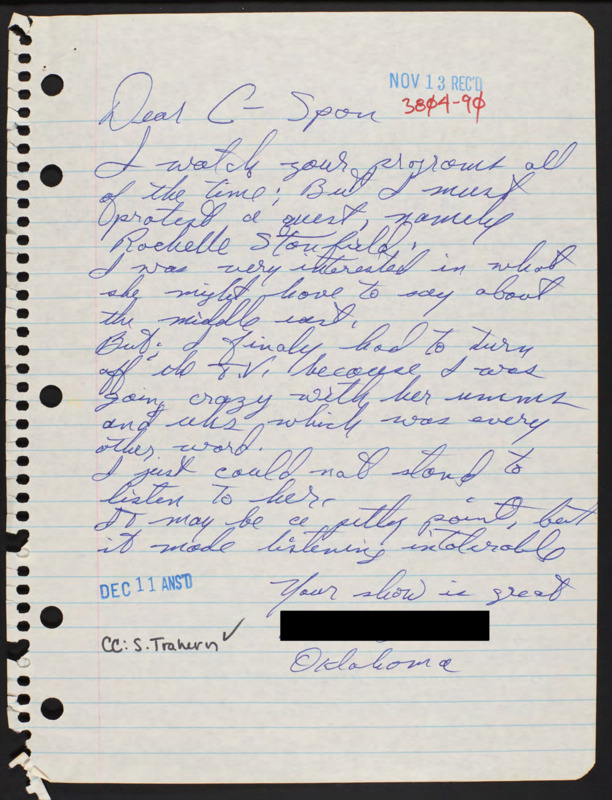 NOV 13 REC'D
3804-90
Dear C-Span
I watch your programs all
of the time; But I must
protest a guest, namely
Rochelle Stanfield.
I was very interested in what
she might have to say about
the middle east.
But; I finaly had to turn
off the T.V. because I was
going crazy with her umms
and uhs which was every
other word.
I just could not stand to
listen to her.
It may be a pitty point, but
it made listening intolerable
DEC 11 ANS'D
Your show is great
CC: S. Trahern ✓
Oklahoma